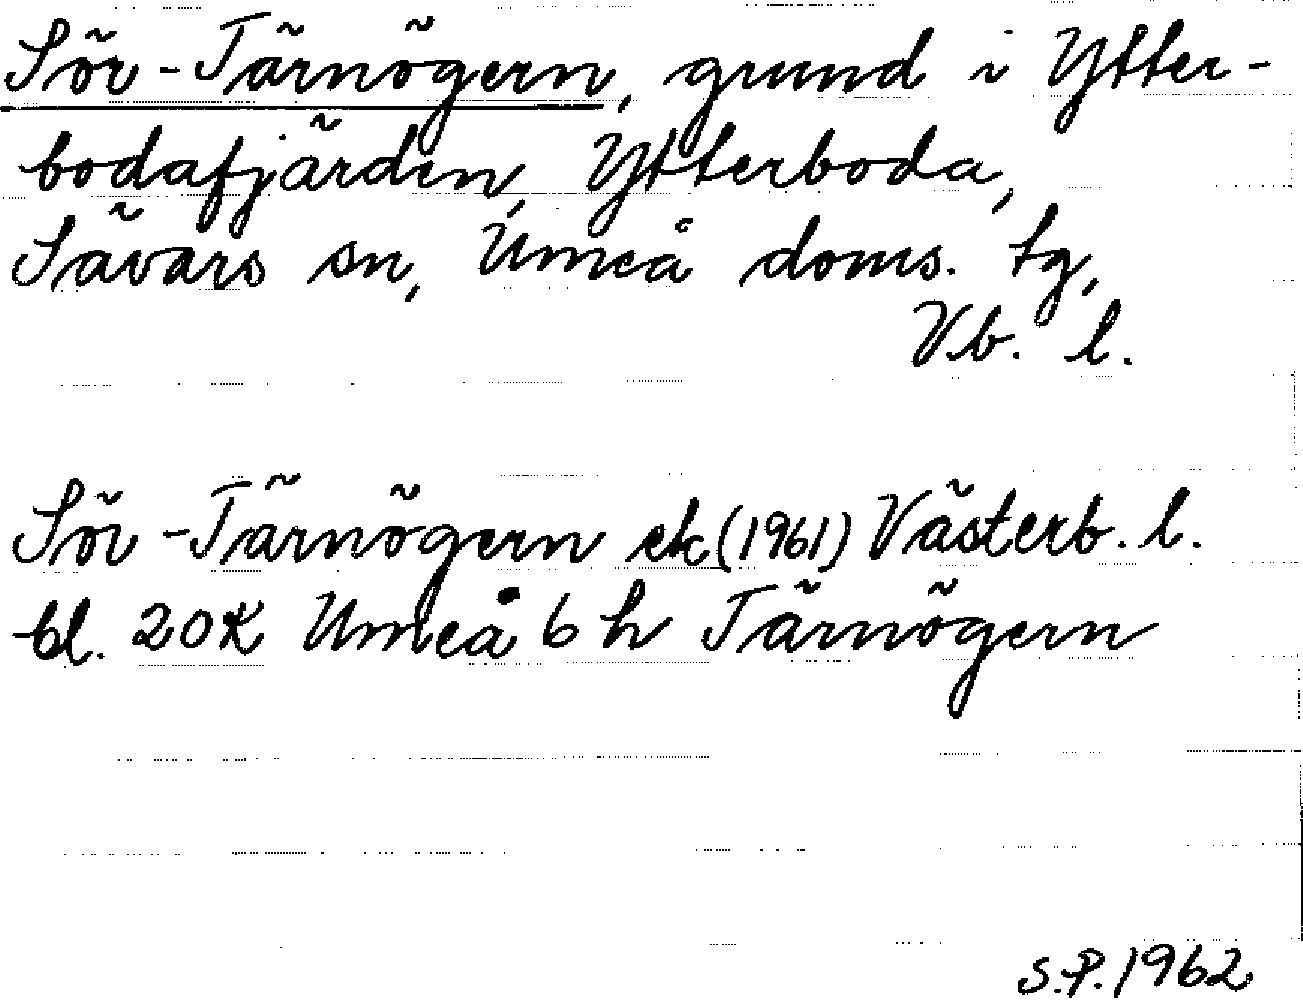 Sör-Tärnögern, grund i Ytter-
bodafjärden, Ytterboda,
Sävars sn, Umeå doms. tg,
Vb. l.
Sör-Tärnögern ek (1961) Västerb. l.
bl. 20K Umeå 6 h Tärnögern
S.P. 1962